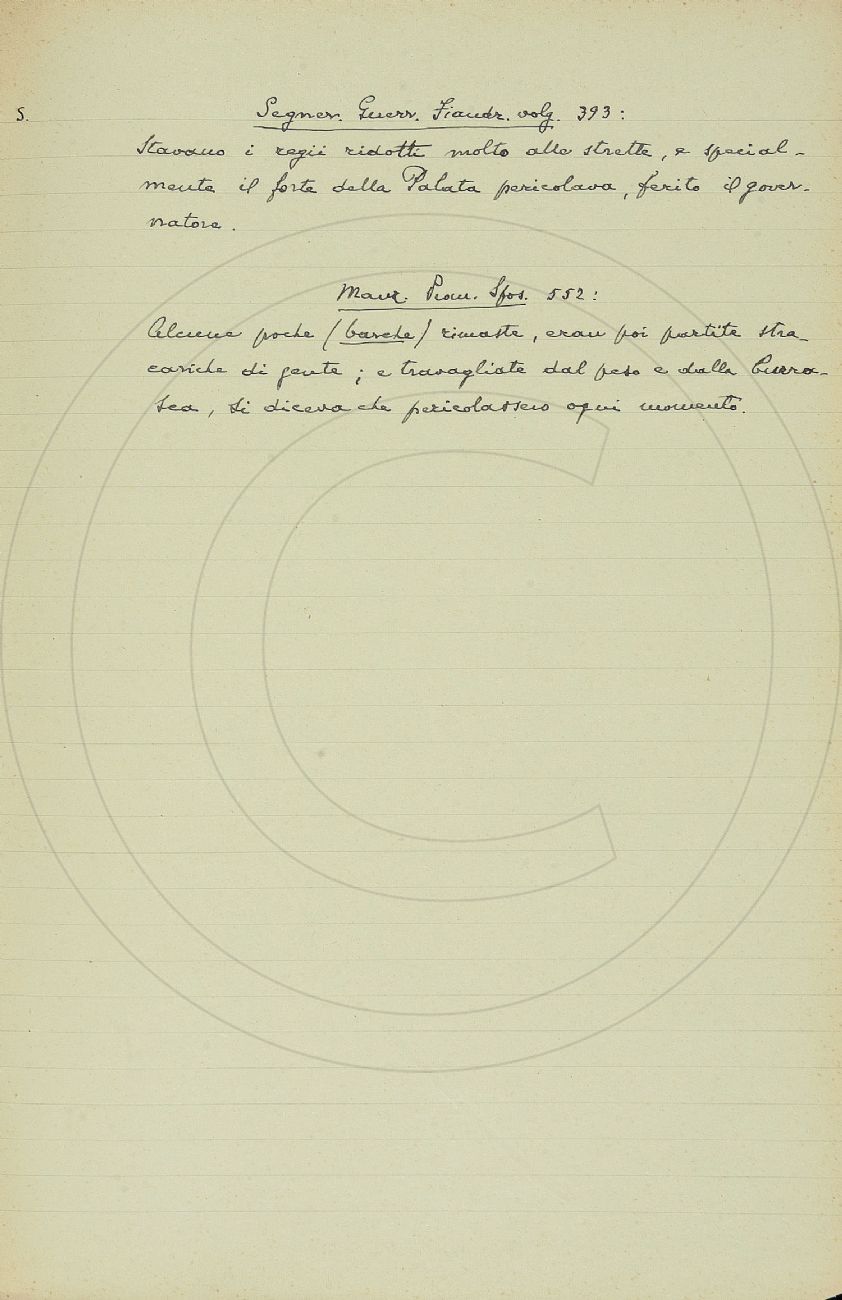 S.
Segner. Guerr. Fiandr. volg. 393:
Stavano i regii ridotti molto alle strette, e special-
mente il forte della Palata pericolava, ferito il gover-
natore.
Manz. Prom. Spos. 552:
Alcune poche (barche) rimaste, eran poi partite stra-
cariche di gente; e travagliate dal peso e dalla burra-
sca, si diceva che pericolassero ogni momento.